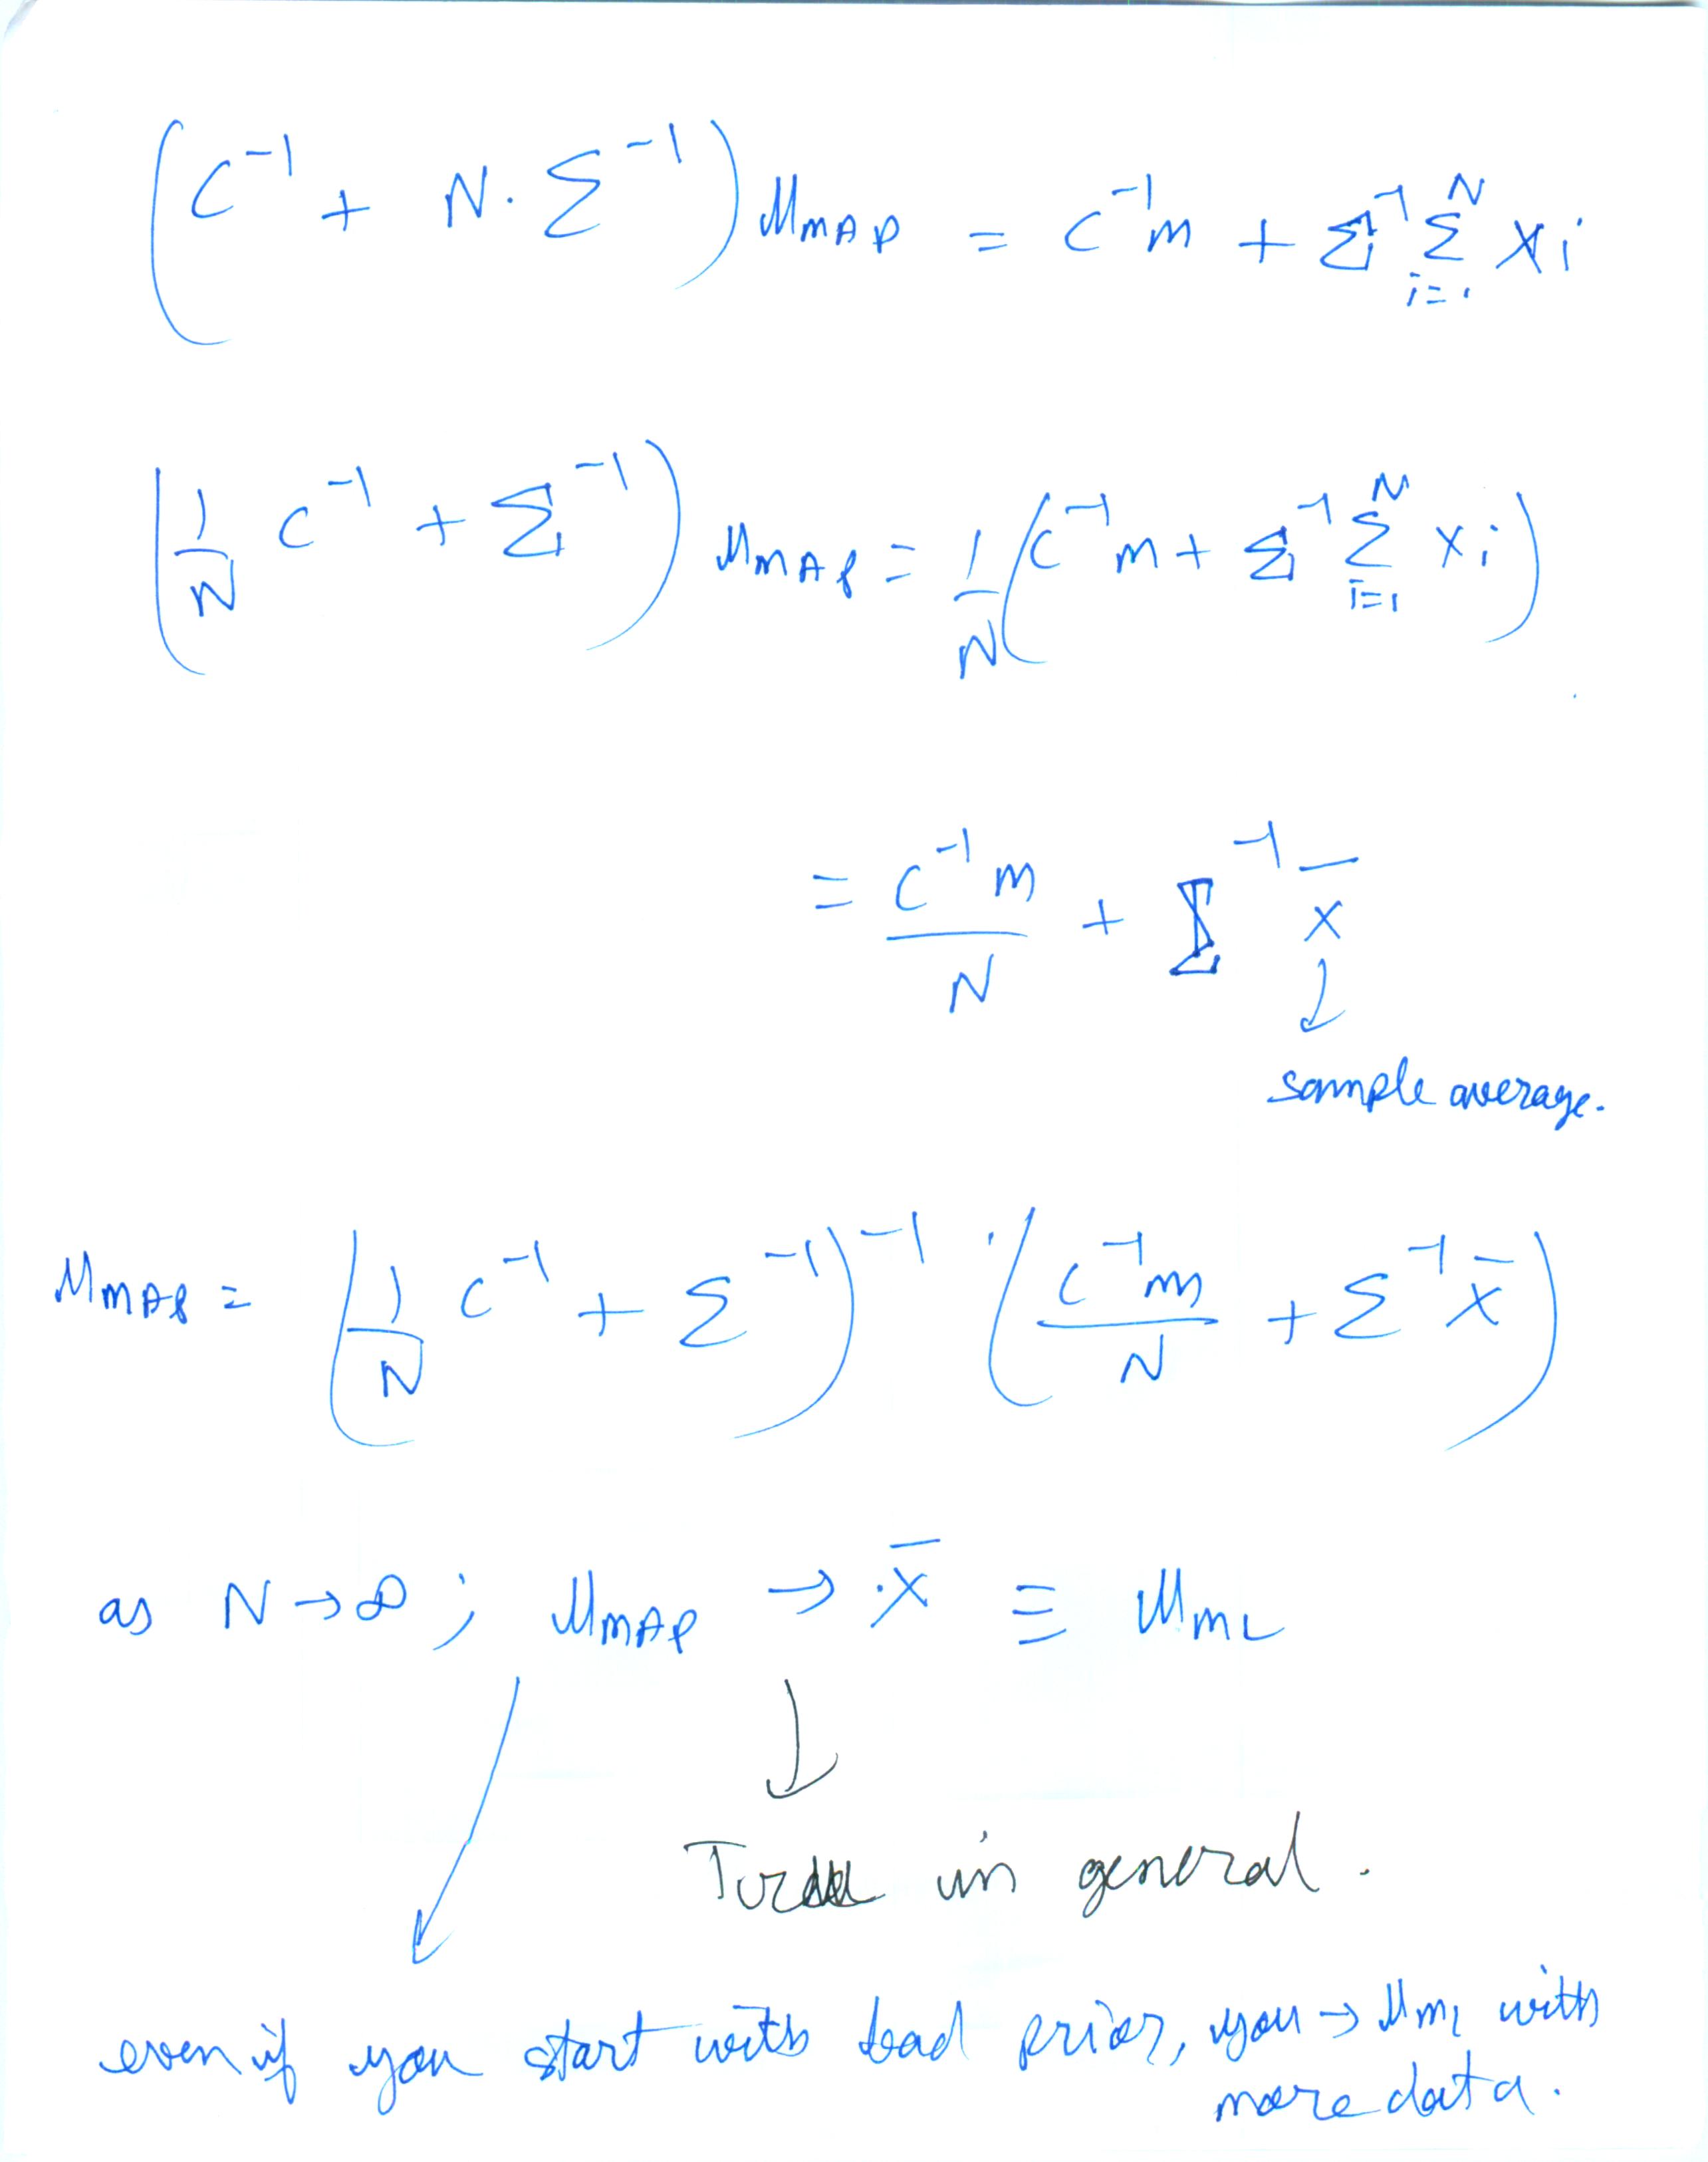 (C⁻¹ + N·Σ⁻¹) μ_MAP = C⁻¹m + Σ⁻¹ Σ_{i=1}^{N} xi
(1/N C⁻¹ + Σ⁻¹) μ_MAP = 1/N (C⁻¹m + Σ⁻¹ Σ_{i=1}^{N} xi)
= C⁻¹m/N + Σ⁻¹ x̄
↓
sample average.
μ_MAP = (1/N C⁻¹ + Σ⁻¹)⁻¹ (C⁻¹m/N + Σ⁻¹ x̄)
as N → ∞ ; μ_MAP → x̄ ≡ μ_ML
↓
True in general.
even if you start with bad prior, you → μ_ML with
more data.